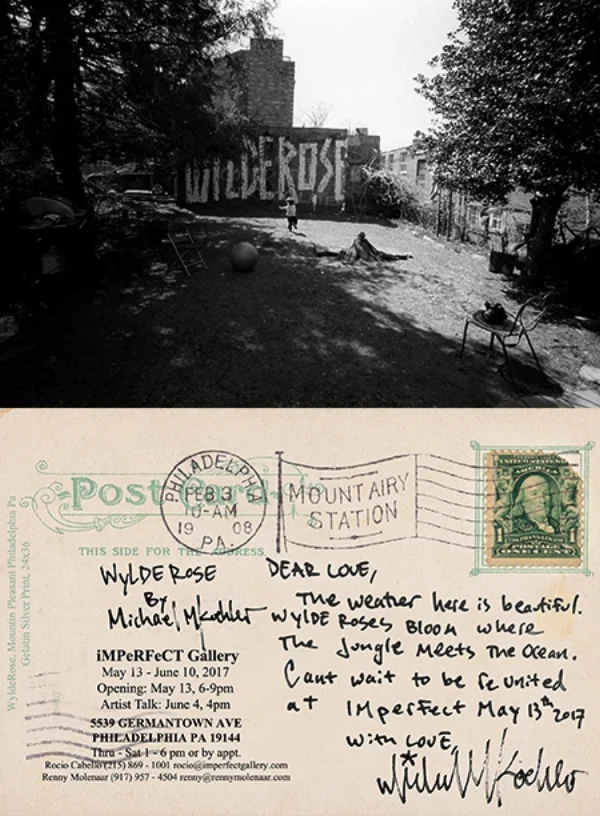 WYLDEROSE
Post Card
PHILADELPHIA
FEB 13
10-AM
19 08
PA.
MOUNT AIRY
STATION
UNITED STATES OF AMERICA
1 1
ONE CENT
THIS SIDE FOR THE ADDRESS
WyldeRose, Mountin Pleasant Philadelphia Pa
Gelatin Silver Print, 24x36
WYLDE ROSE
By
Michael M Koehler
iMPeRFeCT Gallery
May 13 - June 10, 2017
Opening: May 13, 6-9pm
Artist Talk: June 4, 4pm
5539 GERMANTOWN AVE
PHILADELPHIA PA 19144
Thru - Sat 1 - 6 pm or by appt.
Rocio Cabello (215) 869 - 1001 rocio@imperfectgallery.com
Renny Molenaar (917) 957 - 4504 renny@rennymolenaar.com
DEAR LOVE,
The weather here is beautiful.
WYLDE Roses Bloom where
The Jungle Meets The Ocean.
Cant wait to be reunited
at IMperfect May 13th 2017
with LOVE,
Michael M Koehler